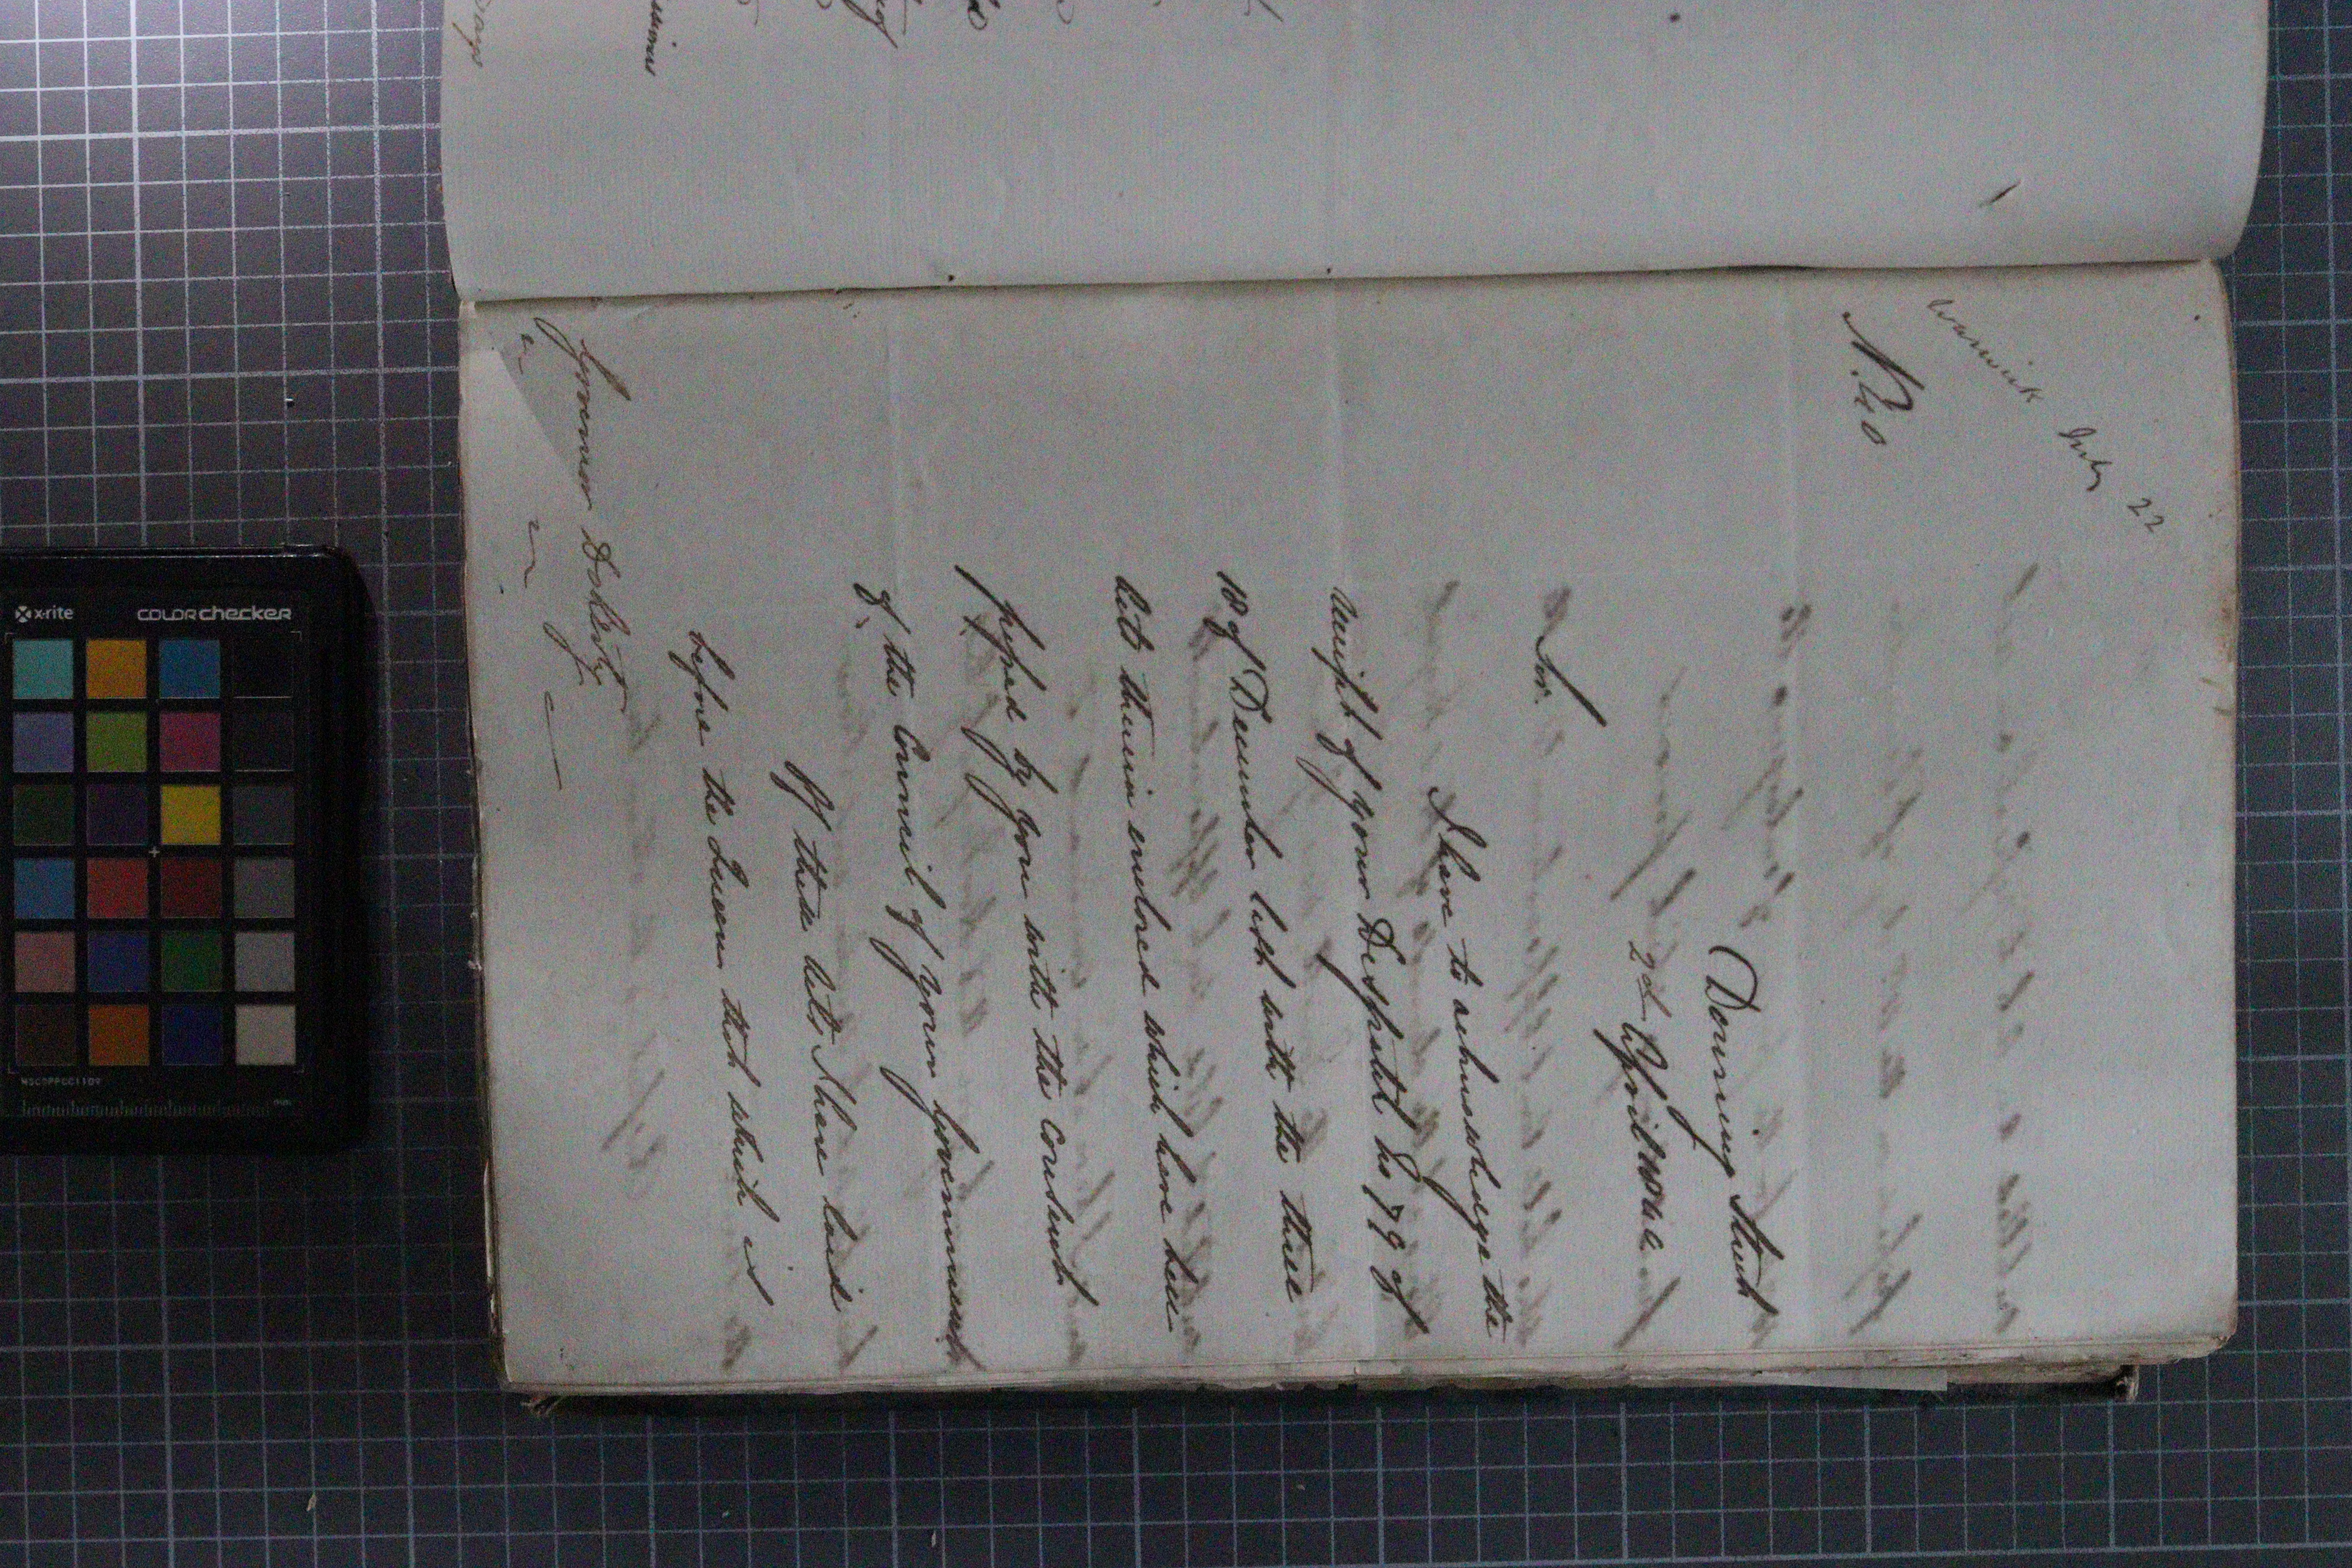 Warwick July 22
N. 40
Downing Street
2d April 1842
Sir.
I have to acknowledge the
receipt of your Despatch No 79 of
18 of December last with the three
Acts therein enclosed which have been
passed by you with the consent
of the Council of your Government
Of these Acts I have laid
before the Queen that which is
Governor Doherty
x-rite
colorchecker